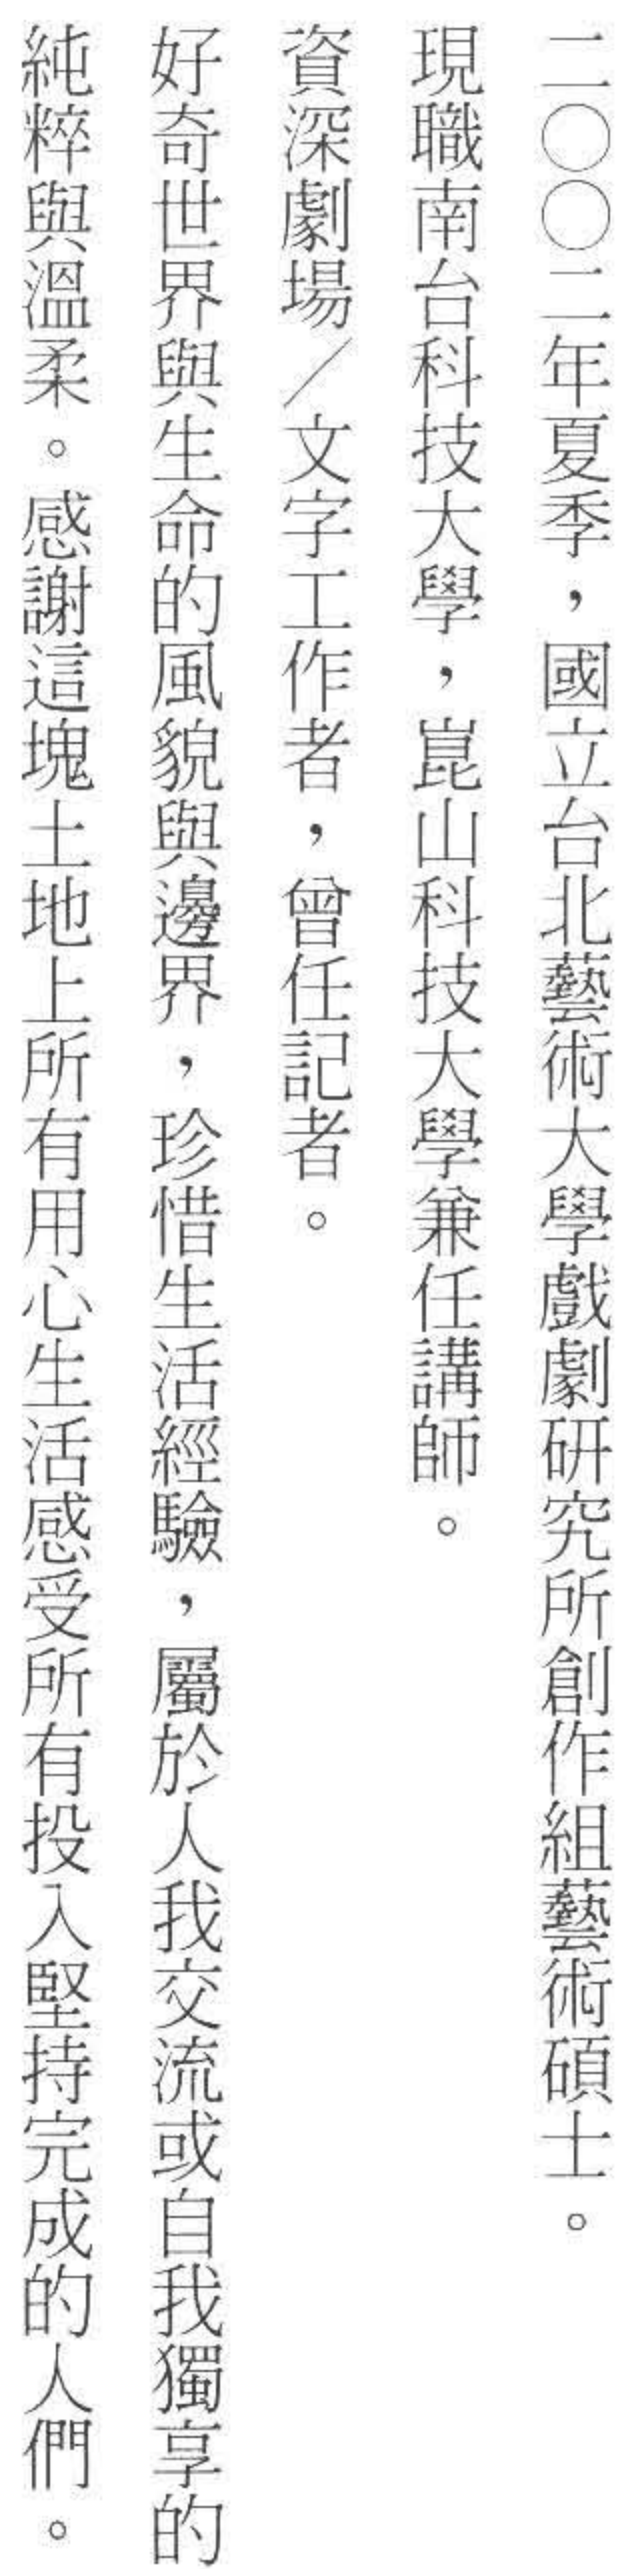 二〇〇二年夏季，國立台北藝術大學戲劇研究所創作組藝術碩士。
現職南台科技大學，崑山科技大學兼任講師。
資深劇場／文字工作者，曾任記者。
好奇世界與生命的風貌與邊界，珍惜生活經驗，屬於人我交流或自我獨享的
純粹與溫柔。感謝這塊土地上所有用心生活感受所有投入堅持完成的人們。